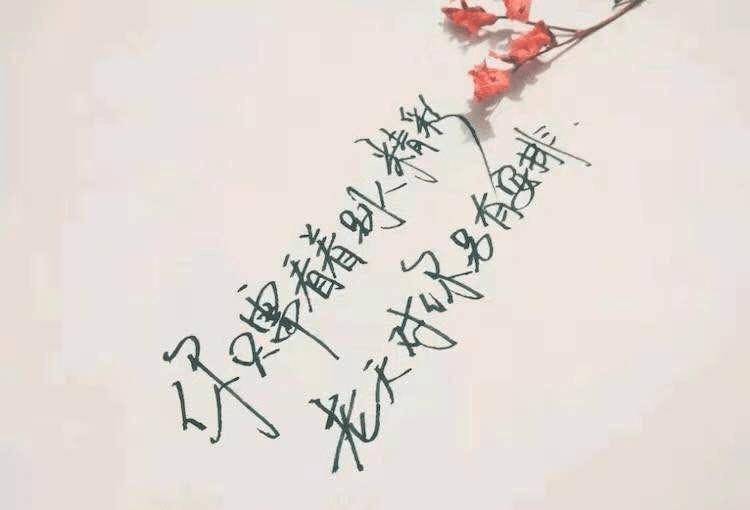 你只需看着别人精彩
老天对你另有安排